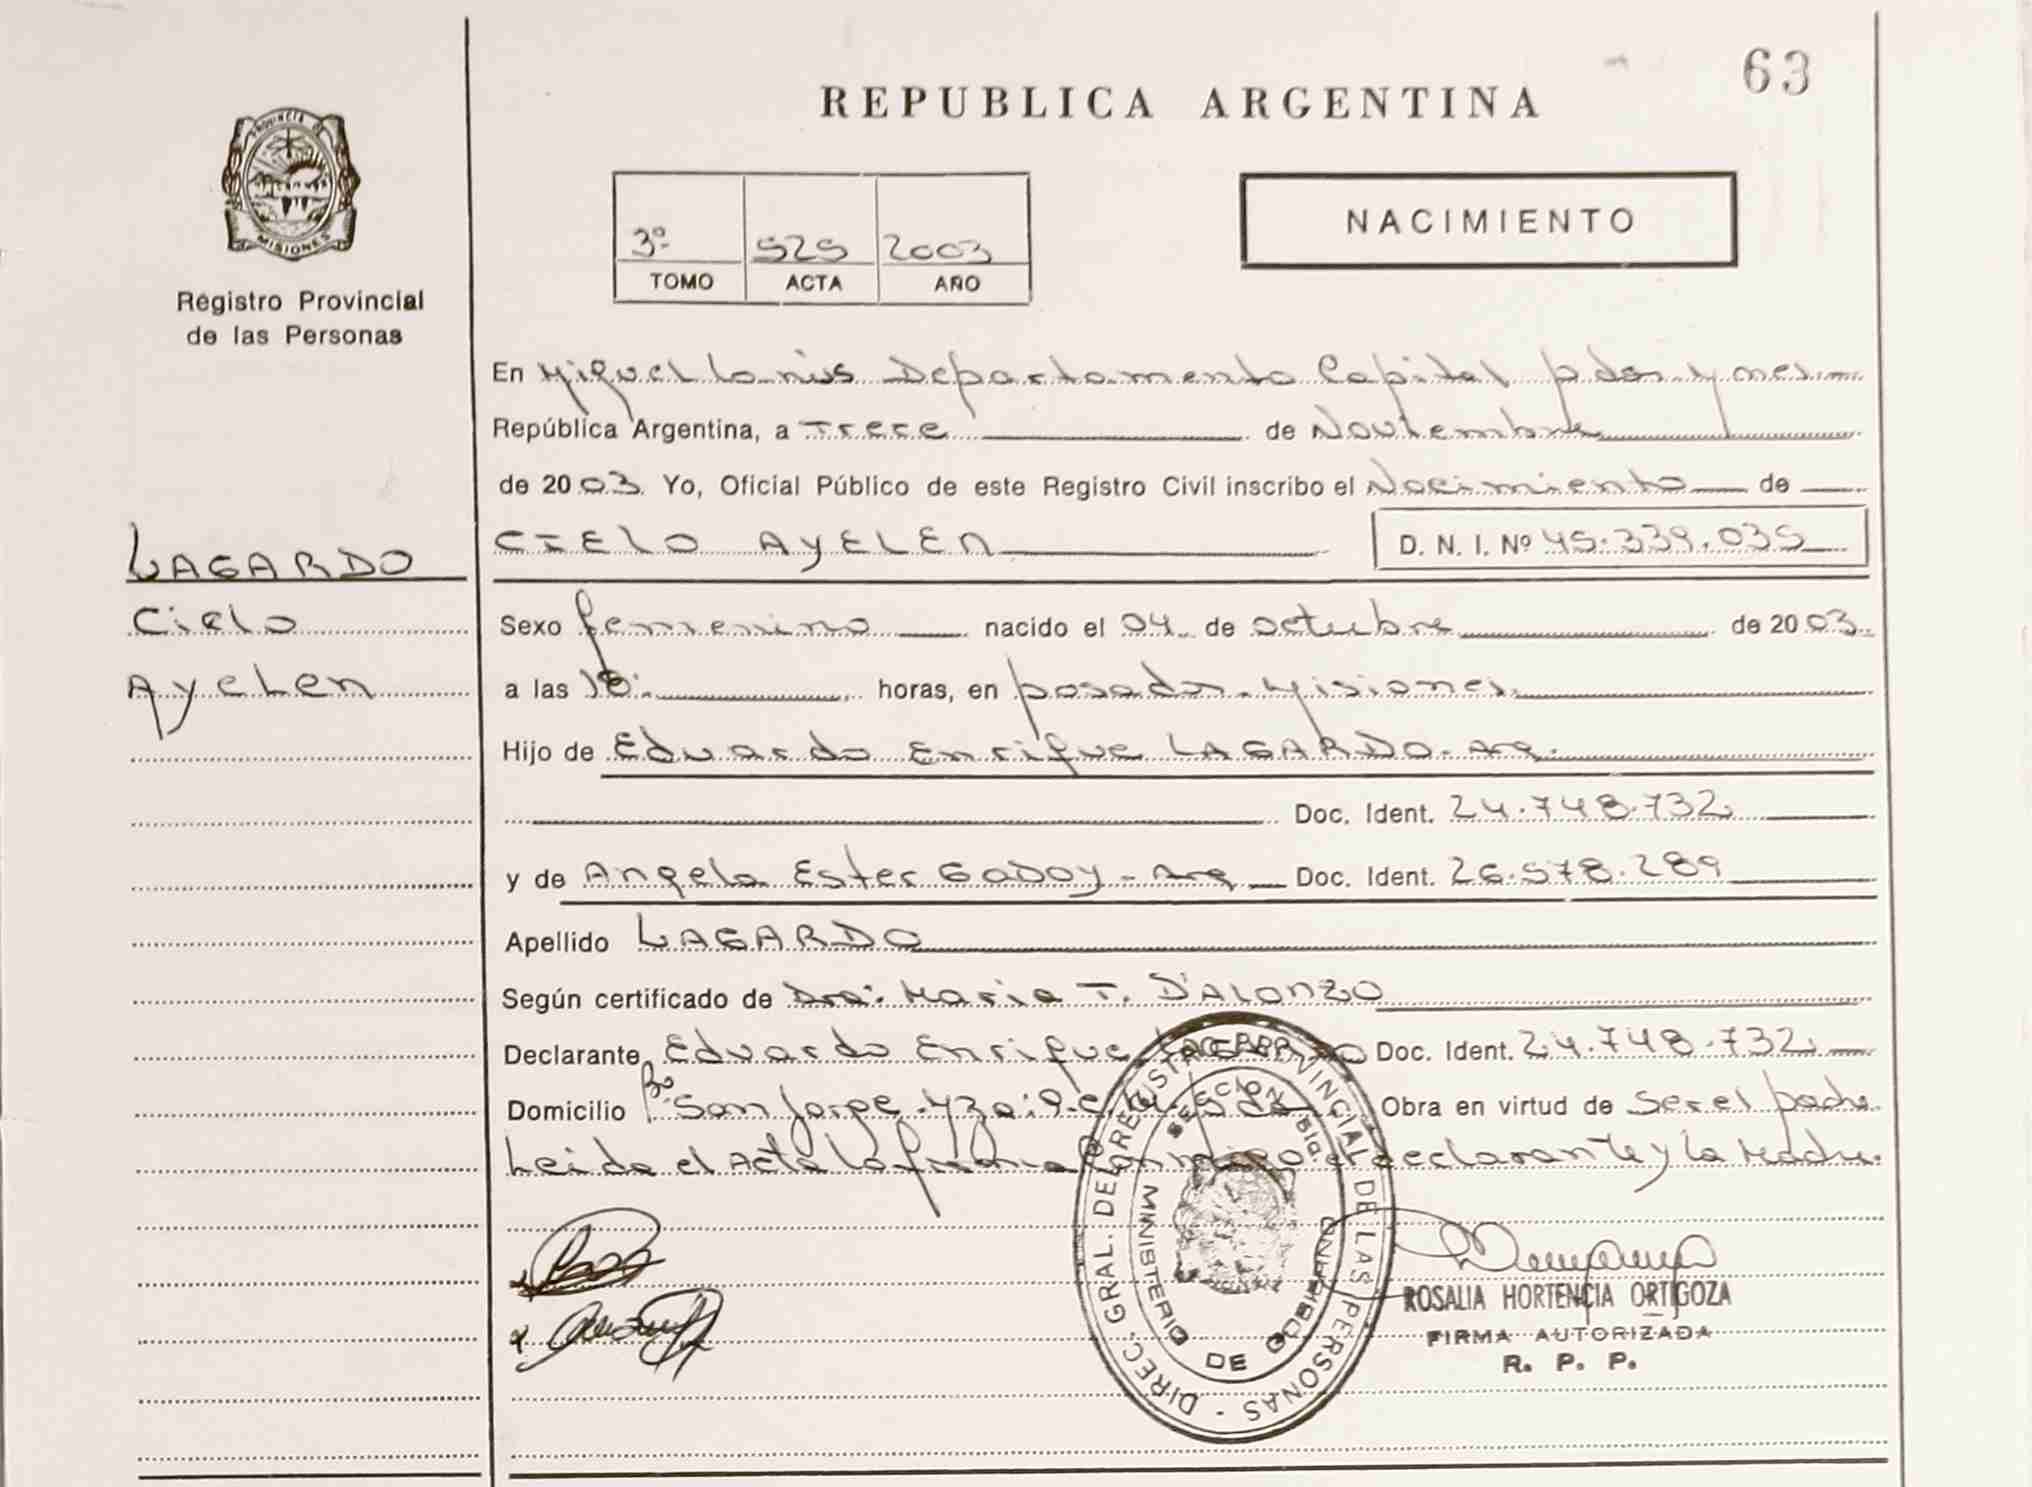 63
REPUBLICA ARGENTINA
PROVINCIA DE
MISIONES
Registro Provincial
de las Personas
3º 525 2003
TOMO ACTA AÑO
NACIMIENTO
En Miguel Lanus Departamento Capital pdas y mnes
República Argentina, a Trece de Noviembre
de 2003 Yo, Oficial Público de este Registro Civil inscribo el Nacimiento de
CIELO AYELEN D. N. I. Nº 45.339.035
LAGARDO
Cielo
Ayelen
Sexo femenino nacido el 04 de octubre de 2003
a las 18. horas, en posadas - Misiones
Hijo de Eduardo Enrique LAGARDO - Arg.
Doc. Ident. 24.748.732
y de Angela Ester GODOY - Arg Doc. Ident. 26.578.289
Apellido LAGARDO
Según certificado de Dra. Maria T. D'ALONZO
Declarante Eduardo Enrique LAGARDO Doc. Ident. 24.748.732
Domicilio Bº San Jorge - Mza 19 Obra en virtud de ser el padre
Leida el Acta la firman conmigo el declarante y la Madre.
DIREC. GRAL. DEL REGISTRO PROVINCIAL DE LAS PERSONAS
MINISTERIO DE GOBIERNO
ROSALIA HORTENCIA ORTIGOZA
FIRMA AUTORIZADA
R. P. P.